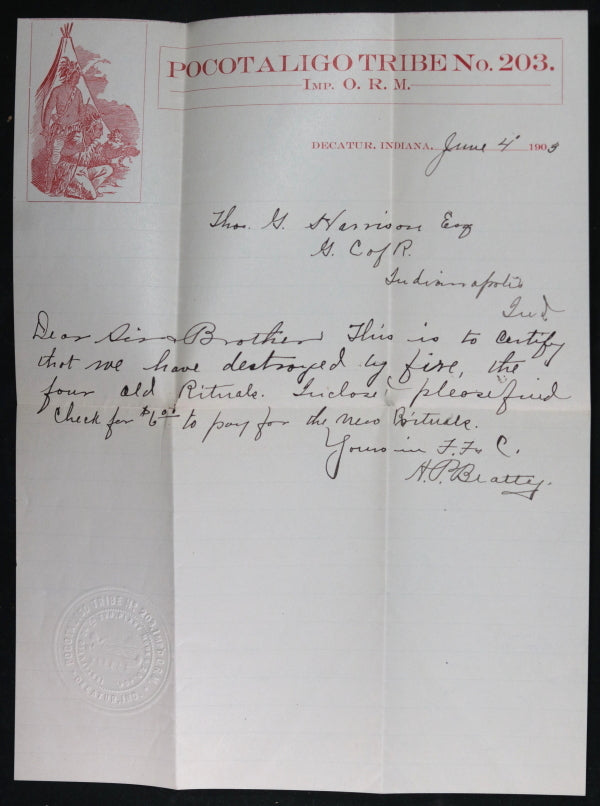 POCOTALIGO TRIBE No. 203.
IMP. O. R. M.
DECATUR, INDIANA, June 4 1903
Thos. G. Harrison Esq
G. C of R.
Indianapolis
Ind.
Dear Sir & Brother This is to certify
that we have destroyed by fire, the
four old Rituals. Inclose please find
Check for $6.00 to pay for the new Rituals.
Yours in F. F. & C.
H. P. Beatty.
POCOTALIGO TRIBE No 203 IMP. O. R. M.
DECATUR, IND.